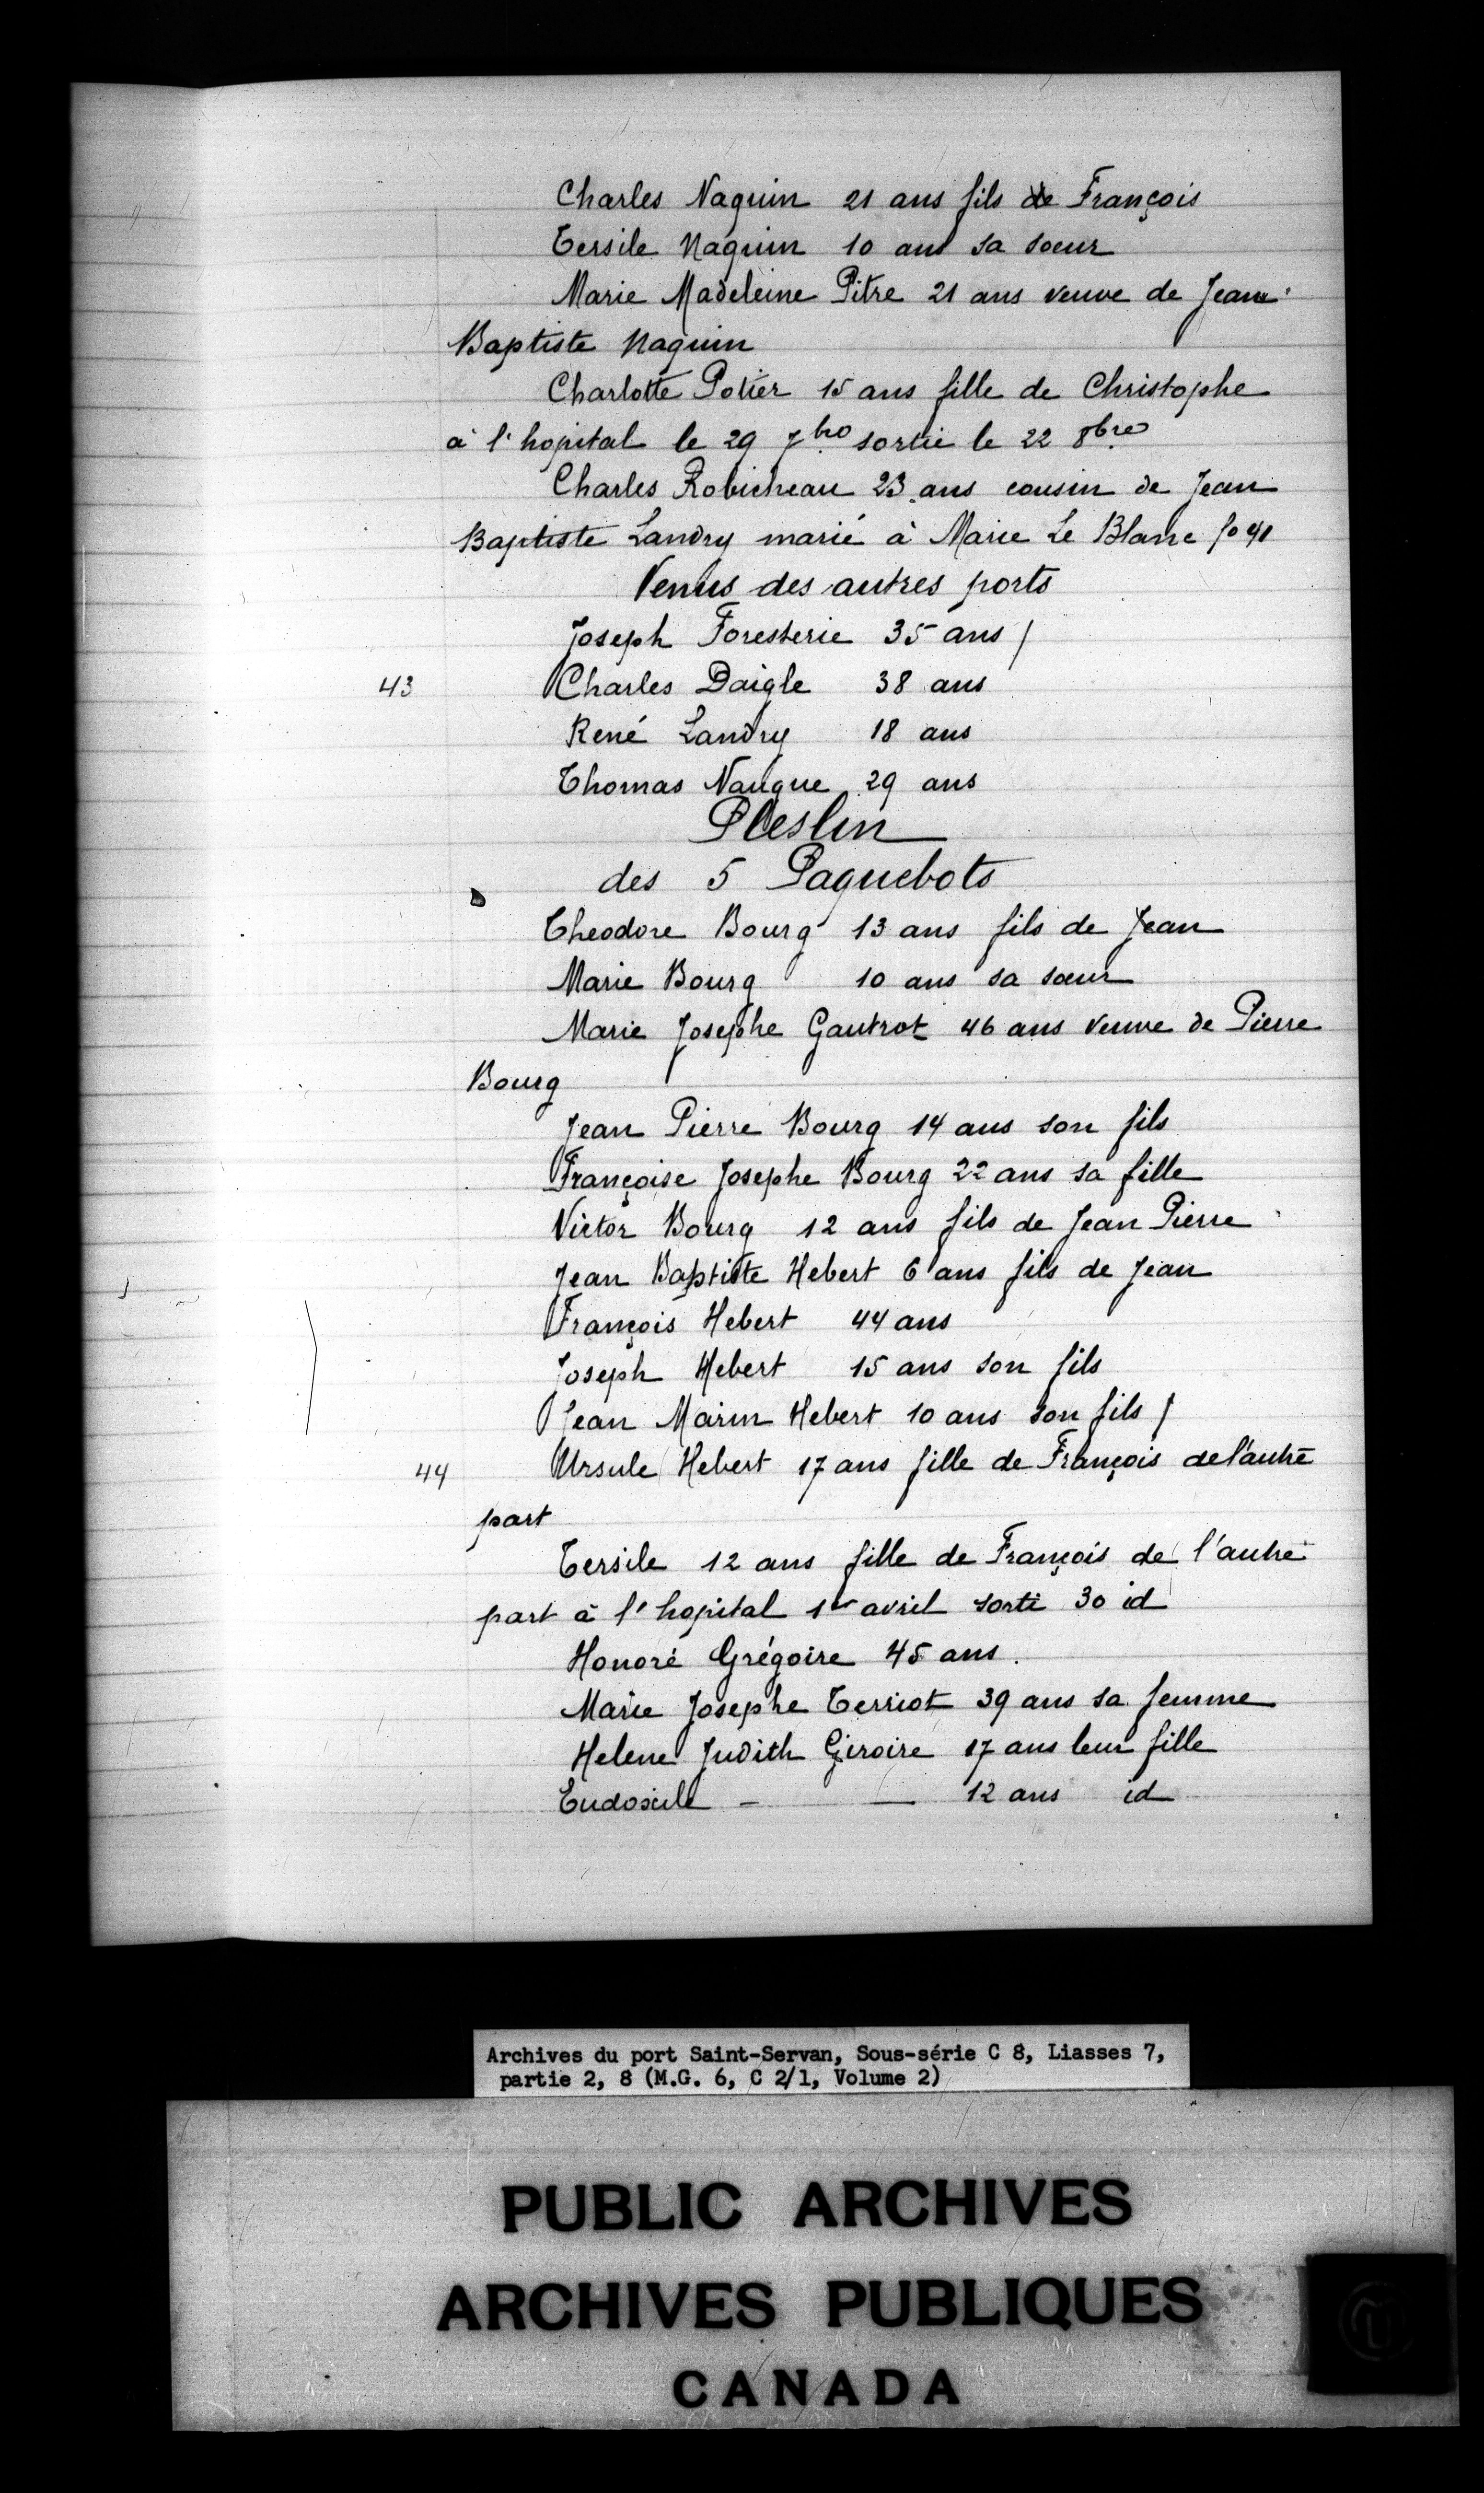 Charles Naquin 21 ans fils de François
Tersile Naquin 10 ans sa soeur
Marie Madeleine Pitre 21 ans veuve de Jean
Baptiste Naquin
Charlotte Potier 15 ans fille de Christophe
à l'hopital le 29 7bre sortie le 22 8bre
Charles Robicheau 23 ans cousin de Jean
Baptiste Landry marié à Marie Le Blanc fo 41
Venus des autres ports
Joseph Foresterie 35 ans /
43 Charles Daigle 38 ans
René Landry 18 ans
Thomas Naugue 29 ans
Pleslin
des 5 Paquebots
Theodore Bourg 13 ans fils de Jean
Marie Bourg 10 ans sa sœur
Marie Josephe Gautrot 46 ans veuve de Pierre
Bourg
Jean Pierre Bourg 14 ans son fils
Françoise Josephe Bourg 22 ans sa fille
Victor Bourg 12 ans fils de Jean Pierre
Jean Baptiste Hebert 6 ans fils de Jean
François Hebert 44 ans
Joseph Hebert 15 ans son fils
Jean Marin Hebert 10 ans son fils /
44 Ursule Hebert 17 ans fille de François de l'autre
part
Tersile 12 ans fille de François de l'autre
part à l'hopital 1er avril sorti 30 id
Honoré Grégoire 45 ans.
Marie Josephe Terriot 39 ans sa femme
Helene Judith Giroire 17 ans leur fille
Eudoxile — — 12 ans id
Archives du port Saint-Servan, Sous-série C 8, Liasses 7,
partie 2, 8 (M.G. 6, C 2/1, Volume 2)
PUBLIC ARCHIVES
ARCHIVES PUBLIQUES
CANADA